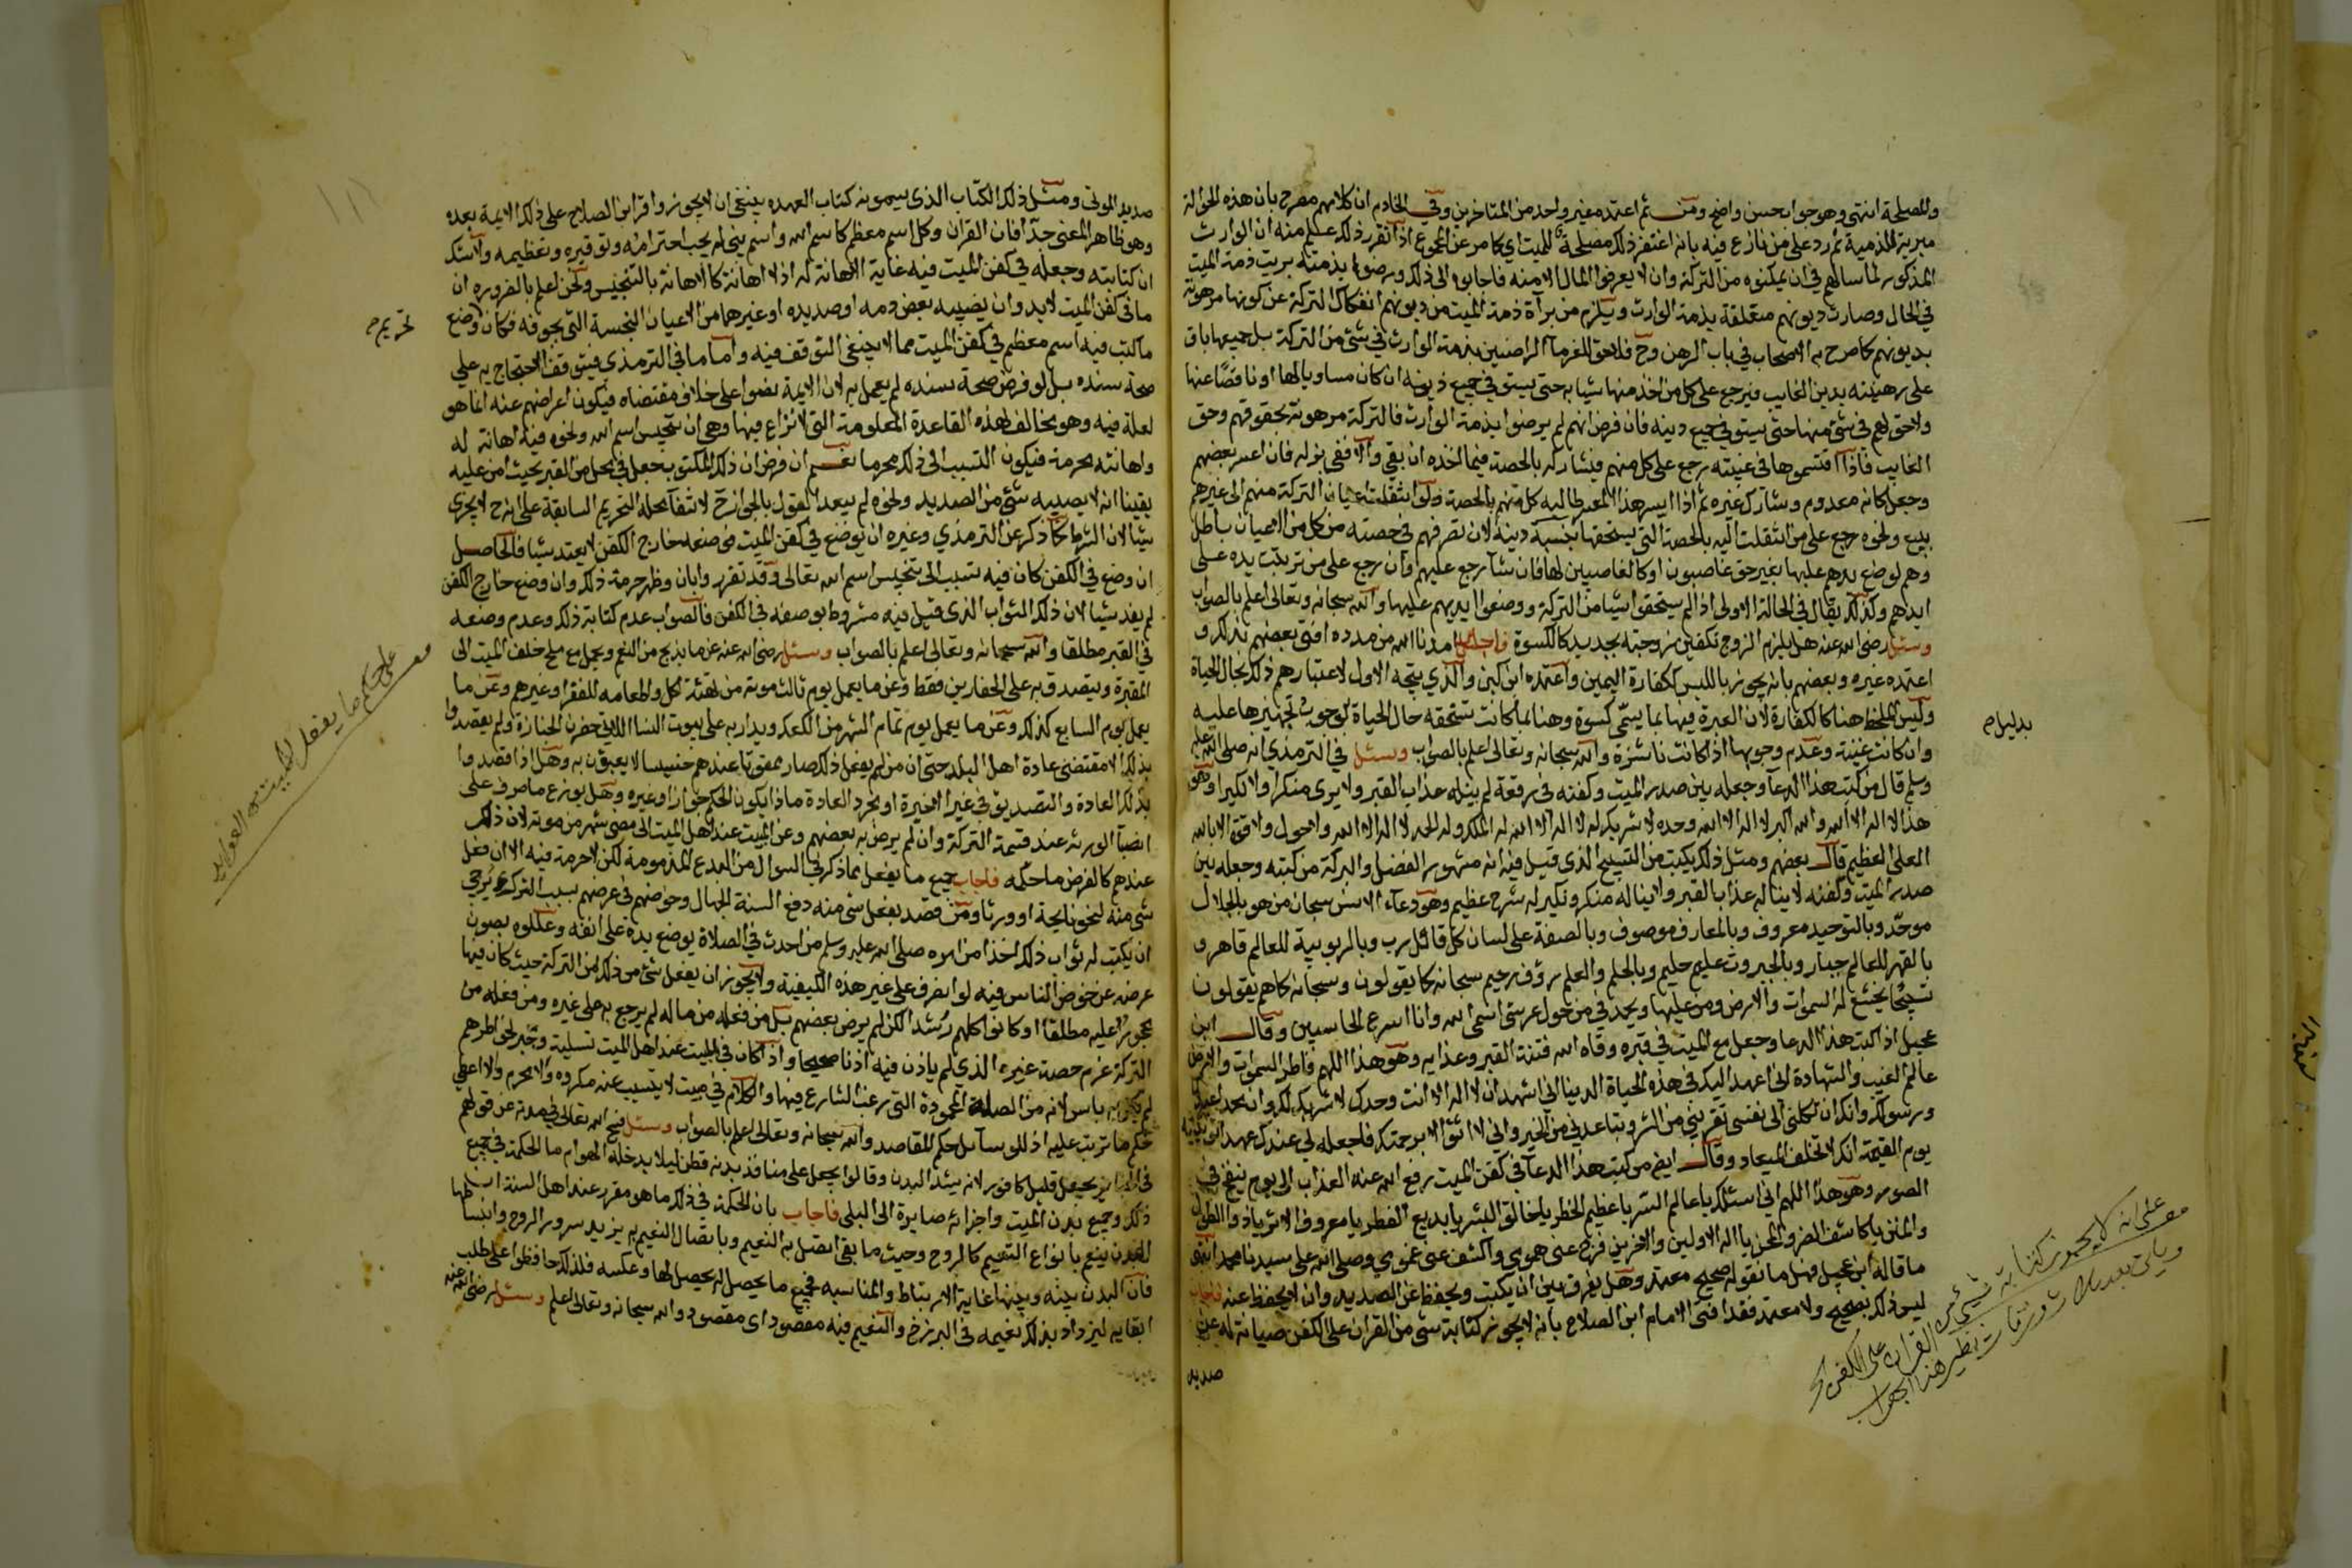 وللمصلحة انتهى وهو جواب حسن واضح ومن ثم اعتمده غير واحد من المتاخرين وفي الخادم ان كلامهم مصرح بان هذه الحوالة
مبرية للذمية ثم رد على من نازع فيه بانه اغتفر ذلك مصلحة للميت اي كما مر عن المجموع اذا تقرر ذلك علم منه ان الوارث
المذكور لما سالهم في ان يمكنوه من التركة وان لا يعرضوا المال الا منه فاجابوه الى ذلك ورضوا بذمته بريت ذمة الميت
في الحال وصارت ديونهم متعلقة بذمة الوارث ويلزم من براة ذمة الميت من ديونهم انفكاك التركة عن كونها مرهونة
بديونهم كما صرح به الاصحاب في باب الرهن وح فلا حق للغرمآ الراضين بذمة الوارث في شئ من التركة بل جميعها باق
على رهنيته بدين الغايب فيرجع على كل من اخذ منها شيا به حتى يستوفي جميع دينه ان كان مساويا لها او ناقصا عنها
ولا حق لهم في شئ منها حتى يستوفي جميع دينه فان فرض انهم لم يرضوا بذمة الوارث فالتركة مرهونة بحقوقهم وحق
الغايب فاذا اقتسموها في غيبته رجع على كل منهم فيشاركه بالحصة فيما اخذه ان بقي والا ففي بدله فان اعسر بعضهم
وجعل كانه معدوم وشارك غيره ثم اذا ايسر هذا المعسر طالبه كل منهم بالحصة ولو انتقلت اعيان التركة منهم الى غيرهم
ببيع ونحوه رجع على من انتقلت اليه بالحصة التي يستحقها بنسبة دينه لان تصرفهم في حصته من كل من الاعيان باطل
وهم لوضع يدهم عليها بغير حق غاصبون او كالغاصبين لها فان شآ رجع عليهم وان رجع على من ترتبت يده على
ايديهم وكذلك يقال في الحالة الاولى اذا لم يستحقوا شيا من التركة ووضعوا ايديهم عليها والله سبحانه وتعالى اعلم بالصواب
وسئل رضي الله عنه هل يلزم الزوج تكفين زوجته بجديد كالكسوة فاجاب امدنا الله من مدده افتى بعضهم بذلك و
اعتمده غيره وبعضهم بانه يجوز باللبس ككفارة اليمين واعتمده ابن كبن والذي يتجه الاول لاعتبارهم ذلك بحال الحياة
وليس الملحظ هنا كالكفارة لان العبرة فيها بما يسمى كسوة وهنا بما كانت تستحقه حال الحياة لوجوب تجهيزها عليه
بدليل م
وان كانت غنية وعدم وجوبها اذا كانت ناشزة والله سبحانه وتعالى اعلم بالصواب وسئل في الترمذي انه صلى الله عليه
وسلم قال من كتب هذا الدعآ وجعله بين صدر الميت وكفنه في رقعة لم ينله عذاب القبر ولا يرى منكرا ولا نكيرا وهو
هذا لا اله الا الله والله اكبر لا اله الا الله وحده لا شريك له لا اله الا الله له الملك وله الحمد لا اله الا الله ولا حول ولا قوة الا بالله
العلي العظيم قال بعضهم ومثل ذلك يكتب من التسبيح الذي قيل فيه انه مشهور الفضل والبركة من كتبه وجعله بين
صدر الميت وكفنه لا يناله عذاب القبر ولا يناله منكر ونكير له شرح عظيم وهو دعاء الانس سبحان من هو بالجلال
موحد وبالتوحيد معروف وبالمعارف موصوف وبالصفة على لسان كل قائل رب وبالربوبية للعالم قاهر و
بالقهر للعالم جبار وبالجبروت عليم حليم وبالحلم والعلم رؤف رحيم سبحانه كما يقولون وسبحانه كما هم يقولون
تسبيحا يخشع له السموات والارض ومن عليها ويحمدني من حول عرشي اسمي الله وانا اسرع الحاسبين وقال ابن
عجيل اذا كتب هذا الدعا وجعل مع الميت في قبره وقاه الله فتنة القبر وعذابه وهو هذا اللهم فاطر السموات والارض
عالم الغيب والشهادة اني اعهد اليك في هذه الحياة الدنيا اني اشهد ان لا اله الا انت وحدك لا شريك لك وان محمدا عبدك
ورسولك وانك ان تكلني الى نفسي تقربني من الشر وتباعدني من الخير واني لا اثق الا برحمتك فاجعله لي عندك عهدا توفينيه
يوم القيمة انك لا تخلف الميعاد وقال ايضا من كتب هذا الدعآ في كفن الميت رفع الله عنه العذاب الى يوم ينفخ في
الصور وهو هذا اللهم اني اسئلك يا عالم السر يا عظيم الخطر يا خالق البشر يا بديع الفطر يا معروف الاثر يا ذا الطول
والمن يا كاشف الضر والمحن يا اله الاولين والاخرين فرج عني همومي واكشف عني غمومي وصلى الله على سيدنا محمد انتهى
ما قاله ابن عجيل فهل ما نقوله صحيح معتمد وهل يفرق بين ان يكتب ويحفظ عن الصديد وان لا يحفظ عنه فاجاب
ليس ذلك بصحيح ولا معتمد فقد افتى الامام ابن الصلاح بانه لا يجوز كتابة شئ من القران على الكفن صيانة له عن
صديد
على انه لا يجوز كتابة شيئ من القران على الكفن
وياتي بعد ثلاث ورقات نظير هذا الجواب
صديد الموتى ومثل ذلك الكتاب الذي يسمونه كتاب العهده ينبغي ان لا يجوز واقر ابن الصلاح على ذلك الايمة بعده
وهو ظاهر المعنى جدا فان القران وكل اسم معظم كاسم الله واسم نبي له يجب احترامه وتوقيره وتعظيمه ولا شك
ان كتابته وجعله في كفن الميت فيه غاية الاهانة له اذ لا اهانة كالاهانة بالتنجيس ونحن نعلم بالضرورة ان
ما في كفن الميت لابد وان يصيبه بعض دمه او صديده او غيرهما من الاعيان النجسة التي بجوفه فكان وضع
تحريم م
ما كتب فيه اسم معظم في كفن الميت مما لا ينبغي التوقف فيه واما ما في الترمذي فيتوقف الاحتجاج به على
صحة سنده بل لو فرض صحة سنده لم يعمل به لان الايمة نصوا على خلاف مقتضاه فيكون اعراضهم عنه انما هو
لعلة فيه وهو مخالف لهذه القاعدة المعلومة التي لا نزاع فيها وهي ان تنجيس اسم الله ونحوه فيه اهانة له
واهانته محرمة فيكون التسبب الى ذلك محرما نعم ان فرض ان ذلك المكتوب جعل في محل من القبر بحيث امن عليه
يقينا انه لا يصيبه شئ من الصديد ونحوه لم يبعد القول بالجواز ح لانتفآ محله التحريم السابقة على انه ح لا يجزي
شيا لان الشرط كما ذكر عن الترمذي وغيره ان يوضع في كفن الميت فوضعه خارج الكفن لا يعتد شيا فالحاصل
ان وضع في الكفن كان فيه تسبب الى تنجيس اسم الله تعالى وقد تقرر وابان وظهر حرمة ذلك وان وضع خارج الكفن
لم يفد شيا لان ذلك الثواب الذي قيل فيه مشروط بوضعه في الكفن فالصواب عدم كتابة ذلك وعدم وضعه
في القبر مطلقا والله سبحانه وتعالى اعلم بالصواب وسئل رضي الله عنه عن ما يذبح من النعم ويحمل مع ملح خلف الميت الى
المقبرة ويتصدق به على الحفارين فقط وعن ما يعمل يوم ثالث موته من تهيئة اكل واطعامه للفقرا وغيرهم وعن ما
يعمل يوم السابع كذلك وعن ما يعمل يوم تمام الشهر من الكعك ويدار به على بيوت النسا اللاتي حضرن الجنازة ولم يقصدوا
بذلك الا مقتضى عادة اهل البلد حتى ان من لم يفعل ذلك صار ممقوتا عندهم خسيسا لا يعبؤن به وهل اذا قصدوا
بذلك العادة والتصديق في غير الاخيرة او مجرد العادة ماذا يكون الحكم جوازا وغيره وهل يوزع ما صرف على
انصبآ الورثه عند قسمة التركة وان لم يرض به بعضهم وعن المبيت عند اهل الميت الى مضي شهر من موته لان ذلك
عندهم كالفرض ما حكمه فاجاب جميع ما يفعل مما ذكر في السوال من البدع المذمومة لكن لا حرمة فيه الا ان فعل
شئ منه لنحو نايحة او ورثا ومن قصد بفعل شئ منه دفع السنة الجهال وخوضهم في عرضهم بسبب الترك يرجى
ان يكتب له ثواب ذلك اخذا من امره صلى الله عليه وسلم من احدث في الصلاة بوضع يده على انفه وعللوه بصون
عرضه عن خوض الناس فيه لو انصرف على غير هذه الكيفية ولا يجوز ان يفعل شئ من ذلك من التركة حيث كان فيها
محجور عليه مطلقا او كانوا كلهم رشدا لكن لم يرض بعضهم بل من فعله من ماله لم يرجع به على غيره ومن فعله من
التركة غرم حصة غيره الذي لم ياذن فيه اذنا صحيحا واذا كان في المبيت عند اهل الميت تسلية وجبر لخواطرهم
لم يكن به باس لانه من الصلة المحمودة التي رغب الشارع فيها والكلام في مبيت لا يتسبب عنه مكروه ولا محرم والا اعطي
حكم ما ترتب عليه اذ للوسآئل حكم المقاصد والله سبحانه وتعالى اعلم بالصواب وسئل فسح الله تعالى في مدته عن قولهم
ذلك وجميع بدن الميت واجزائه صايرة الى البلى فاجاب بان الحكمة في ذلك ما هو مقرر عند اهل السنة ان
البدن ينعم بانواع النعيم كالروح وحيث ما بقي اتصل به النعيم وباتصال النعيم به يزيد سرور الروح وانبساطها
فان البدن بيته وبينها غاية الارتباط والمناسبه فجميع ما يحصل له يحصل لها وعكسه فلذلك حافظوا على طلب
ابقايه ليزداد بذلك نعيمه في البرزخ والتنعيم فيه مقصود اي مقصود والله سبحانه وتعالى اعلم وسئل رضي الله عنه
على حكم ما يفعل للميت من العوايد